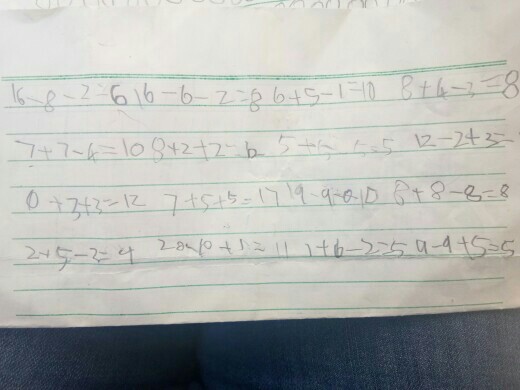 16-8-2=6 16-6-2=8 6+5-1=10 8+4-3=8
7+7-4=10 8+2+2= 12-2+3=
7+5+5=17 19-9-0=10 8+8-8=8
2+5-3=4 20-10+1=11 1+6-2=5 9-9+5=5